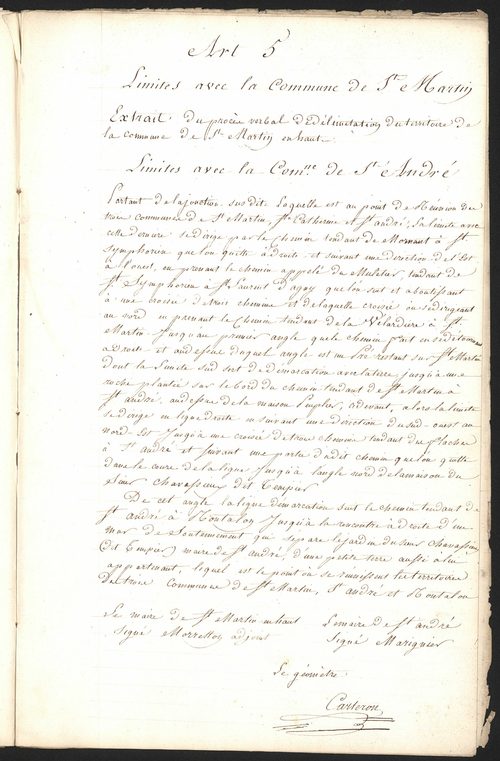 Art 5
Limites avec la Commune de St Martin
Extrait du procès verbal de délimitation du territoire de
la commune de St Martin en haut.
Limites avec la Comne de St André
Partant de la jonction susdite laquelle est au point de Réunion des
trois communes de St Martin, Ste Catherine et St andré, la limite avec
cette dernière se dirige par le Chemin tendant de Mornant à St
Symphorien que l'on quitte à droite et suivant une direction de l'Est
à l'ouest, en prenant le chemin appelé du Muletier, tendant de
St Symphorien à St Laurent d'agny que l'on suit et aboutissant
à une croisée de trois chemins et de laquelle croisée on se dirigeant
au nord en prenant le Chemin tendant de la Velardière à St
Martin Jusqu'au premier angle que le chemin fait en se détournant
a Droite et au dessus duquel angle est un Pré restant sur St Martin
dont la Limite sud sert de démarcation avec la terre jusqu'à une
roche plantée sur le bord du chemin tendant de St Martin à
St andré, au dessus de la maison alors la limite
se dirige en ligne droite en suivant une direction du sud-ouest au
nord-Est Jusqu'à une croisée de trois chemins tendant du
à St andré et suivant une partie dudit chemin que l'on quitte
dans le cours de la ligne Jusqu'à l'angle nord de la maison du
sieur Chavassieux dit Tempur
De cet angle la ligne démarcation suit le chemin tendant de
St andré à Montalon Jusqu'à la rencontre à droite d'un
mur de soutenement qui sépare le jardin du sieur Chavassieux
(dit Tempur) maire de St andré, d'une petite terre aussi à lui
appartenant, lequel est le point où se réunissent les territoires
Des trois Communes de St Martin, St andré et Montalon
Le maire de St Martin en haut
Signé Morrellon adjoint
Le maire de St andré
Signé Marignier
Le géomètre
Carteron